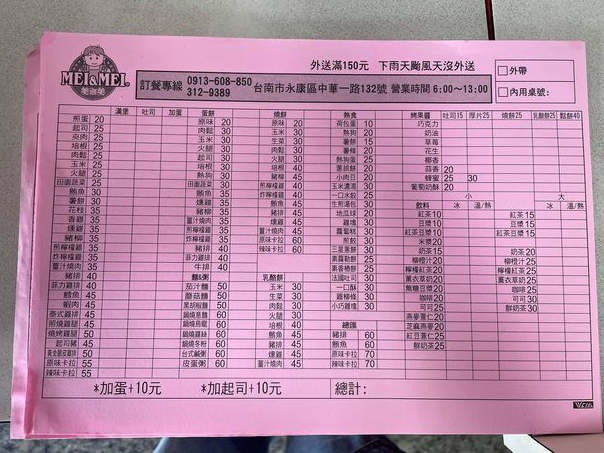 MEI&MEI
美而美
外送滿150元 下雨天颱風天沒外送
外帶
訂餐專線 0913-608-850
312-9389
台南市永康區中華一路132號 營業時間6:00~13:00
內用桌號:
漢堡 吐司 加蛋
煎蛋 20
起司 25
夾肉 25
培根 25
玉米 25
火腿 25
田園蔬菜 25
鮪魚 30
薯餅 30
花枝 35
香雞 35
燻雞 35
豬柳 35
煎檸檬雞 35
炸檸檬雞 35
薑汁燒肉 35
豬排 40
菲力雞排 40
鱈魚 45
蝦肉 45
泰式雞排 45
照燒雞腿 45
燒烤雞腿 50
起司豬 45
黃金脆皮雞排 50
原味卡拉 55
辣味卡拉 55
蛋餅
原味 20
肉鬆 30
玉米 30
起司 30
火腿 30
培根 30
田園蔬菜 30
鮪魚 30
燻雞 35
豬柳 35
薑汁燒肉 35
煎檸檬雞 35
炸檸檬雞 35
豬排 40
菲力雞排 40
牛排 40
麵&粥
茄汁麵 50
蘑菇麵 50
黑胡椒麵 50
鍋燒意麵 60
鍋燒烏龍 60
鍋燒雞絲 60
鍋燒冬粉 60
台式鹹粥 60
皮蛋粥 60
燒餅
原味 20
玉米 30
生菜 30
肉鬆 30
火腿 30
培根 30
豬柳 40
煎檸檬雞 40
炸檸檬雞 40
燻雞 40
薑汁燒肉 40
豬排 45
原味卡拉 60
辣味卡拉 60
乳酪餅
玉米 30
生菜 30
肉鬆 30
火腿 30
培根 40
鮪魚 45
豬排 45
燻雞 45
薑汁燒肉 45
熱食
荷包蛋 10
熱狗 20
薯餅 15
薯條 20
熱狗蛋 25
蔥抓餅 30
小肉豆 20
玉米濃湯 30
一口水餃 25
生煎湯包 30
地瓜球 20
雞塊 30
蘿蔔糕 30
煎餃 30
三星蔥餅 30
素蘿勒餅 25
素香椿餅 25
法國吐司 30
一口酥 30
雞柳條 30
小巧雞塊 30
總匯
豬排 60
鮪魚 60
原味卡拉 70
辣味卡拉 70
烤果醬 吐司15 厚片25 燒餅25 乳酪餅25 鬆餅40
巧克力
奶油
草莓
花生
椰香
蒜香 20
蜂蜜 25 30
葡萄奶酥 20
小 大
飲料 冰 溫/熱 冰 溫/熱
紅茶 10 紅茶 15
豆漿 10 豆漿 15
紅茶豆漿 10 紅茶豆漿 15
米漿 20
奶茶 15 奶茶 20
柳橙汁 20 柳橙汁 25
檸檬紅茶 20 檸檬紅茶 25
薰衣草奶 20 薰衣草奶茶 25
無糖豆漿 20 咖啡 25
咖啡 20 可可 30
可可 25 鮮奶 30
燕麥薏仁 20
芝麻燕麥 20
紅豆薏仁 25
鮮奶茶 25
*加蛋+10元 *加起司+10元 總計: